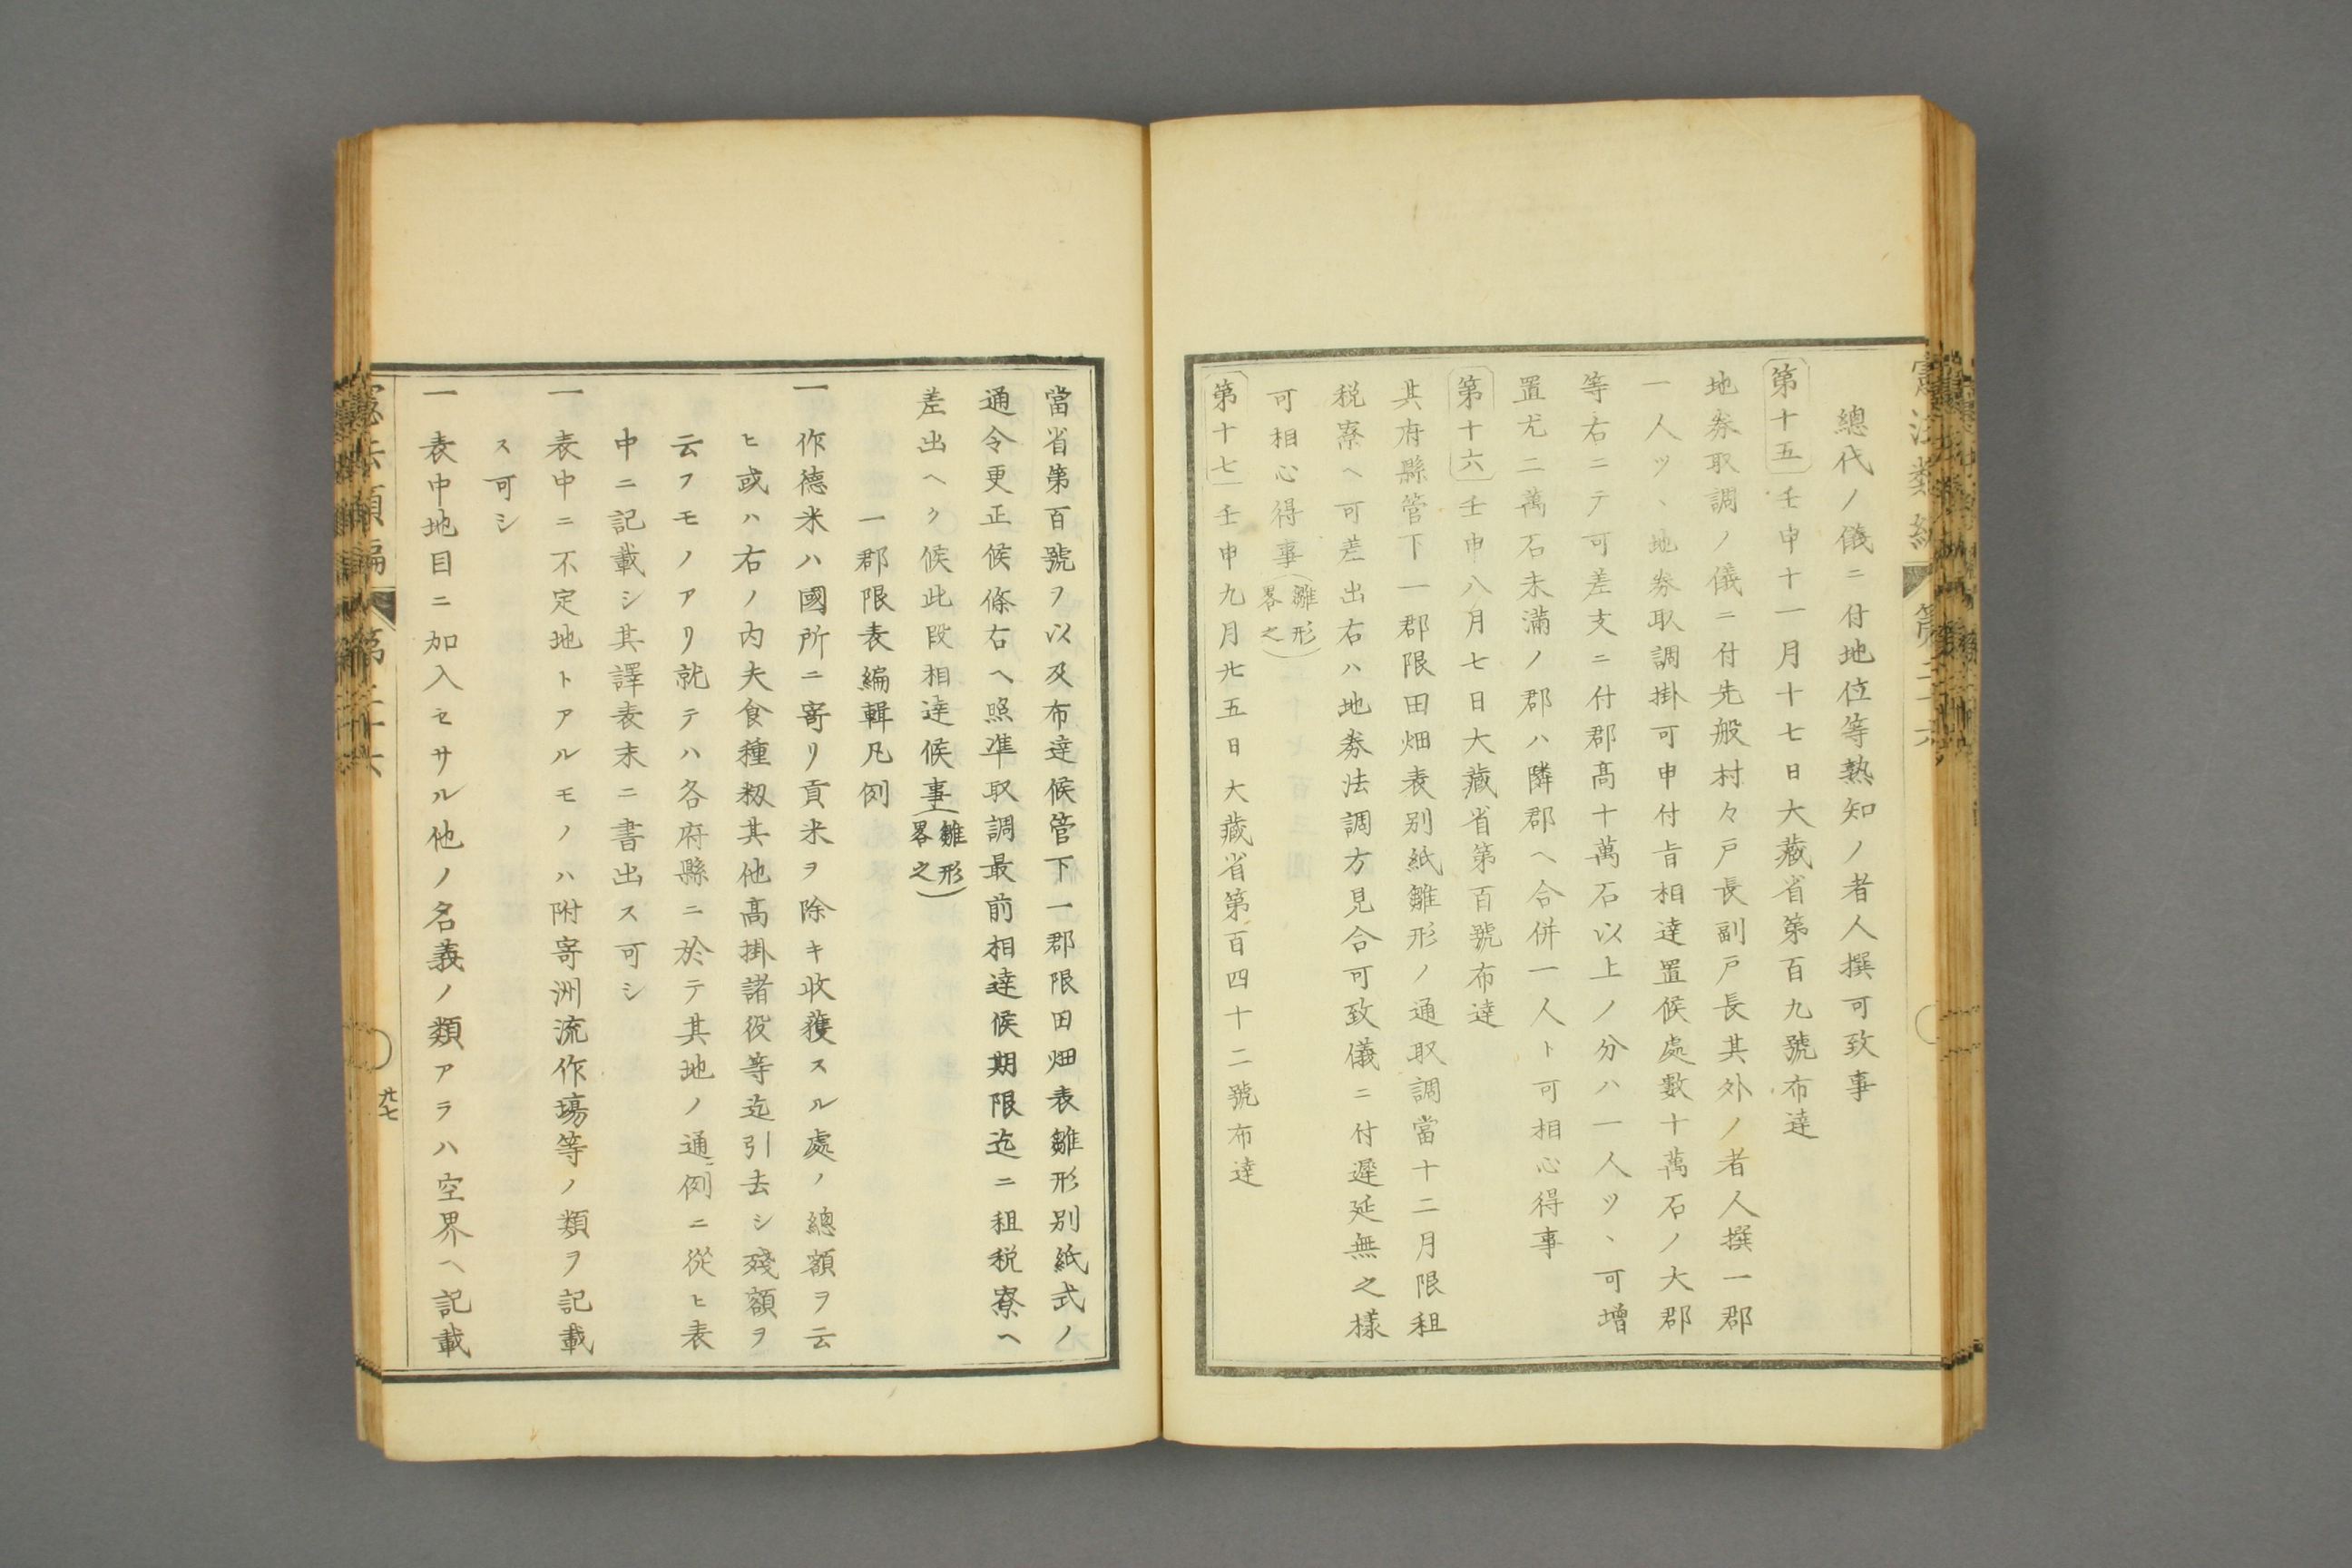 總代ノ儀ニ付地位等熟知ノ者人撰可致事
第十五 壬申十一月十七日大藏省第百九號布達
地券取調ノ儀ニ付先般村々戸長副戸長其外ノ者人撰一郡
一人ツヽ地券取調掛可申付旨相達置候處數十萬石ノ大郡
等右ニテ可差支ニ付郡髙十萬石以上ノ分ハ一人ツヽ可增
置尤二萬石未滿ノ郡ハ隣郡ヘ合併一人ト可相心得事
第十六 壬申八月七日大藏省第百號布達
其府縣管下一郡限田畑表別紙雛形ノ通取調當十二月限租
税寮ヘ可差出右ハ地券法調方見合可致儀ニ付遲延無之樣
可相心得事(雛形畧之)
第十七 壬申九月廿五日大藏省第百四十二號布達
當省第百號ヲ以及布達候管下一郡限田畑表雛形別紙式ノ
通令更正候條右ヘ照準取調最前相達候期限迄ニ租税寮ヘ
差出ヘク候此段相達候事(雛形畧之)
一郡限表編輯凡例
一 作德米ハ國所ニ寄リ貢米ヲ除キ收穫スル處ノ總額ヲ云
ヒ或ハ右ノ内夫食種籾其他髙掛諸役等迄引去シ殘額ヲ
云フモノアリ就テハ各府縣ニ於テ其地ノ通例ニ從ヒ表
中ニ記載シ其譯表末ニ書出ス可シ
一 表中ニ不定地トアルモノハ附寄洲流作塲等ノ類ヲ記載
ス可シ
一 表中地目ニ加入セサル他ノ名義ノ類アラハ空界ヘ記載
憲法類編 第二十六
九七